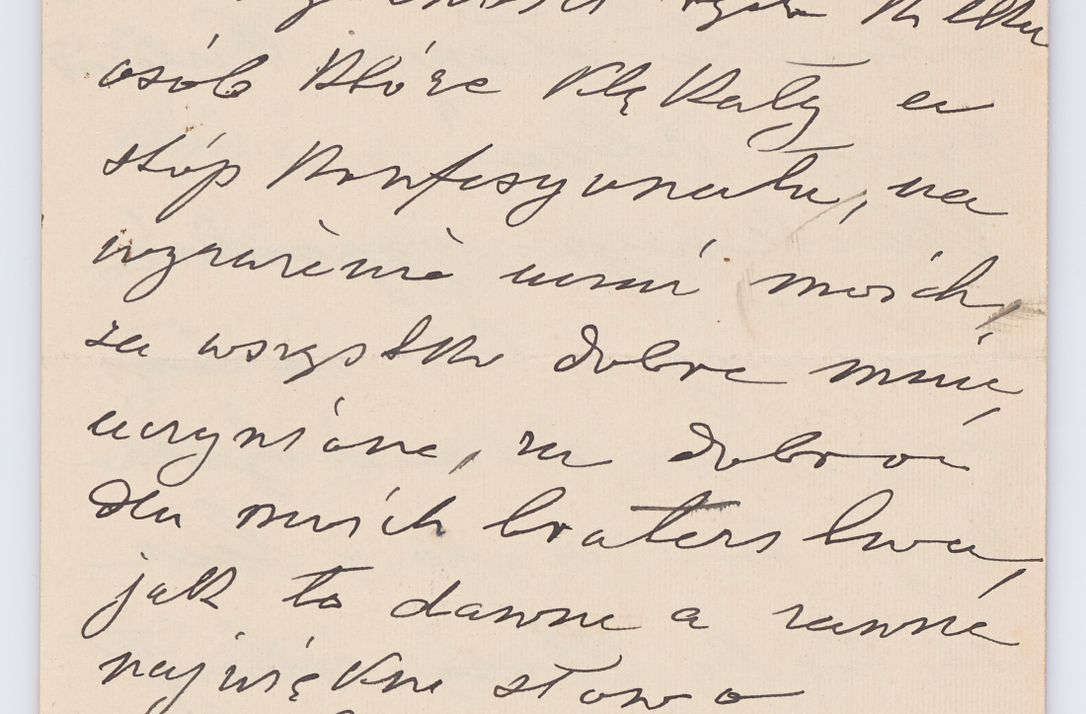 osób które klękały u
stóp konfesyonału, na
wyrażenie uczuć moich,
za wszystko dobre mnie
uczynione, za dobroć
dla moich braterstwa,
jak to dawne a zawsze
najpiękniejsze słowo